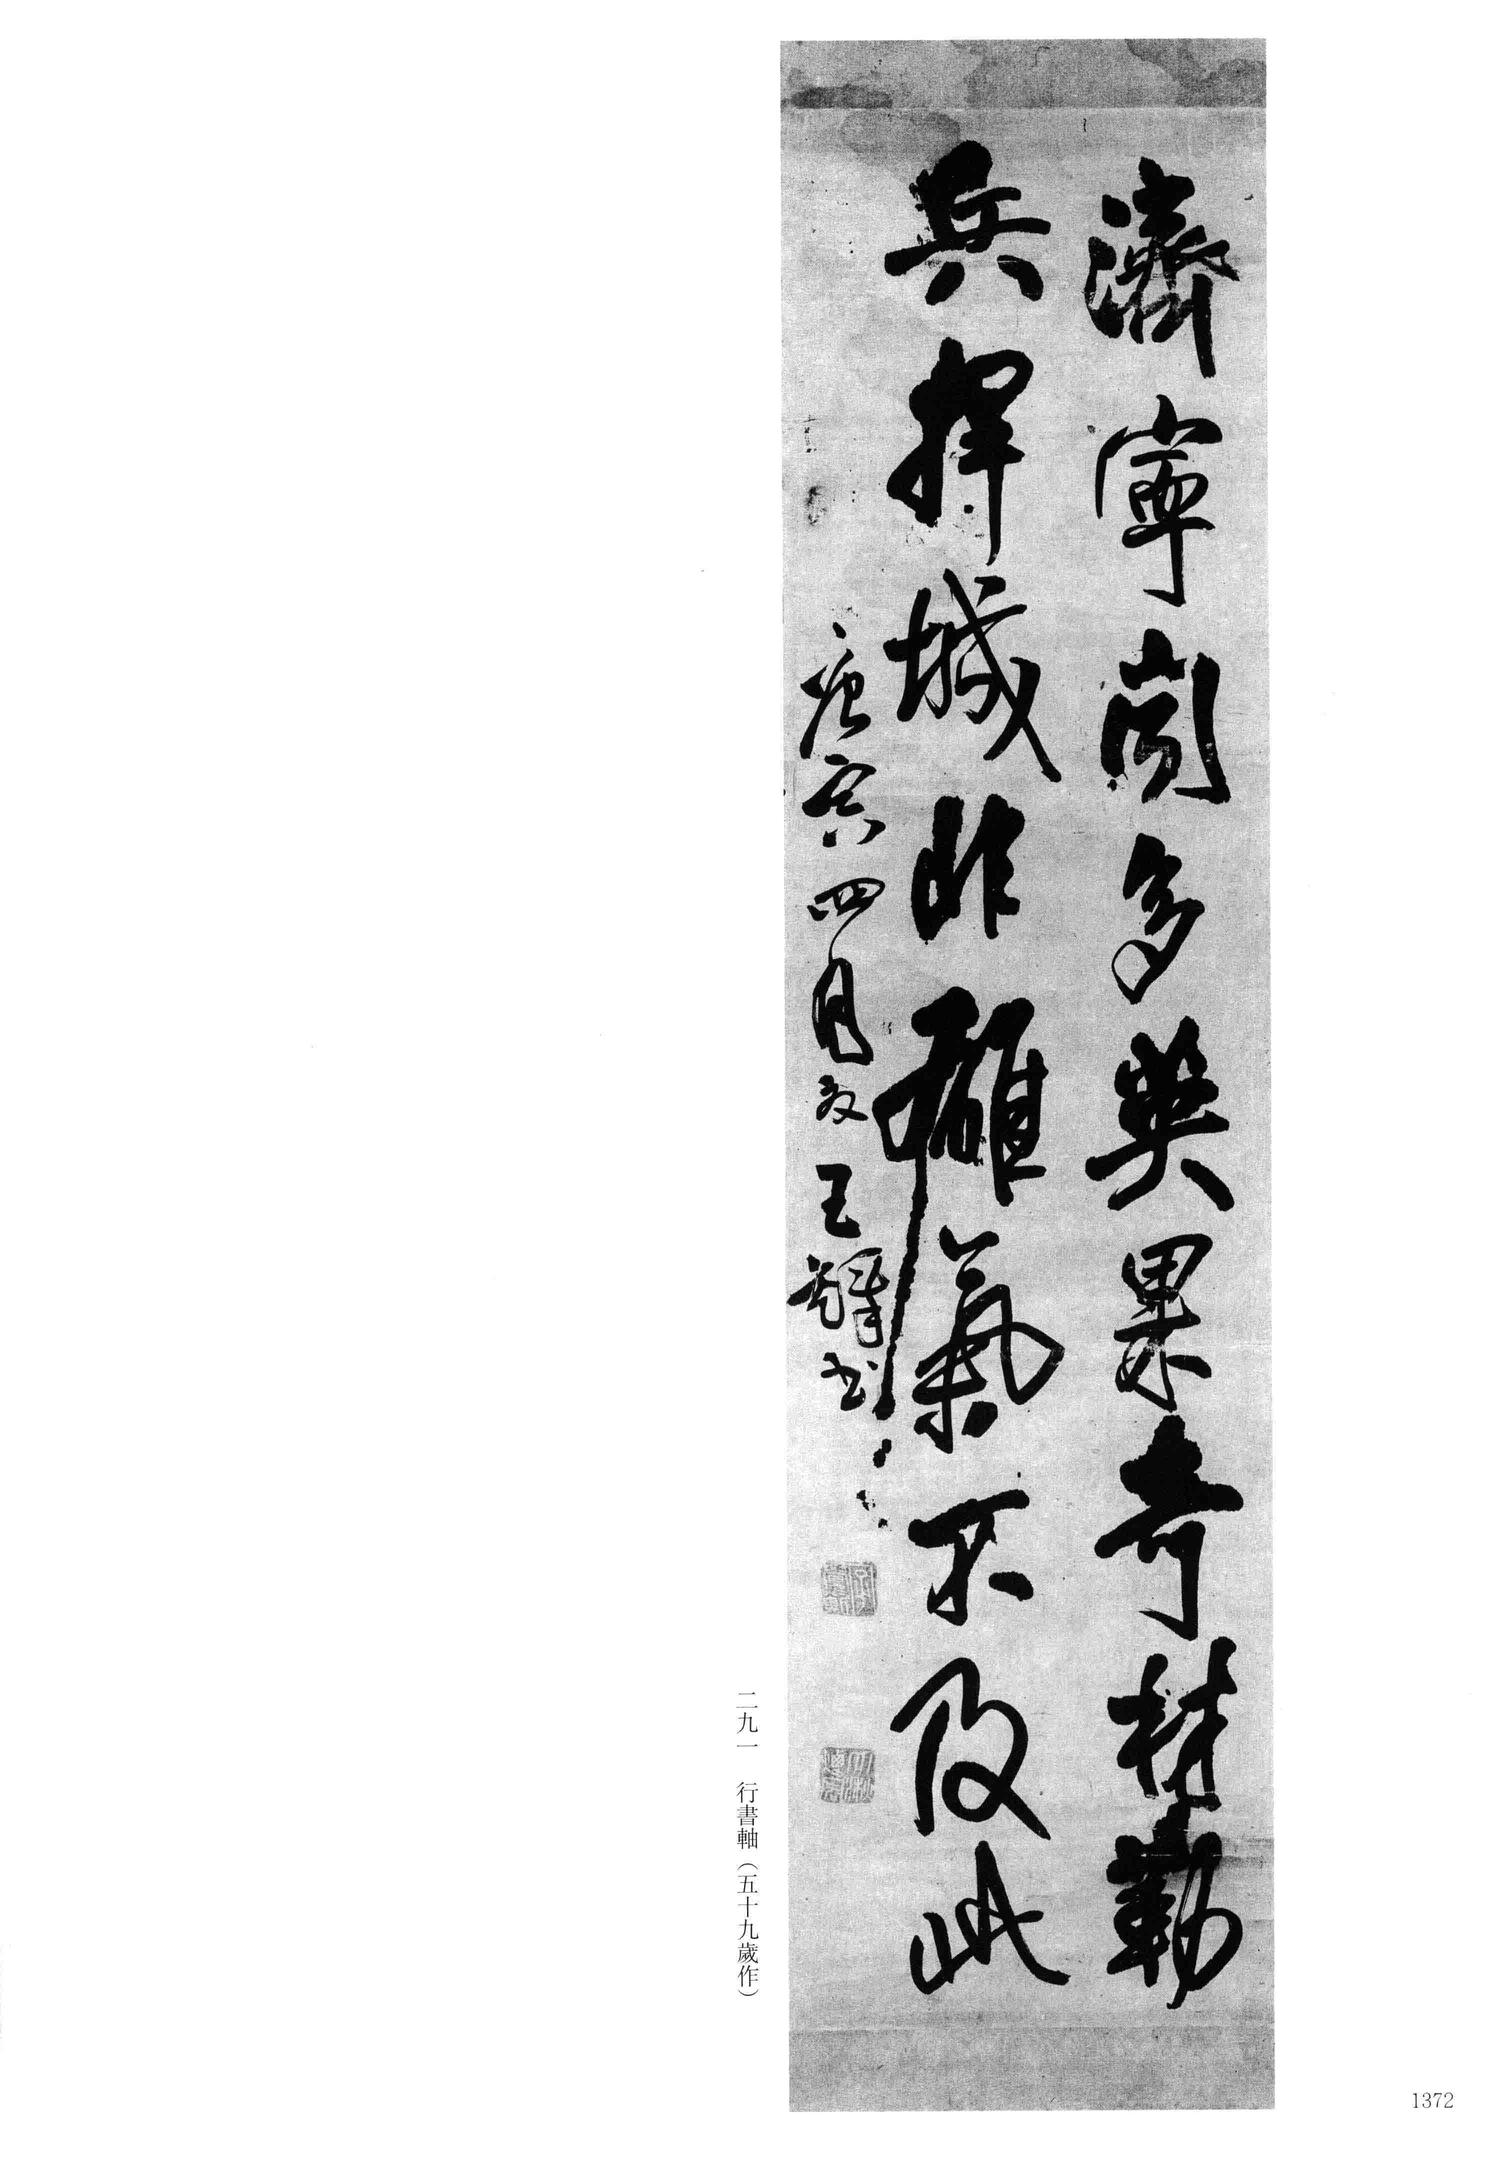 濟寧間多英果奇材勒
兵捍城非雄氣不及此
庚寅四月夜王鐸書
二九一 行書軸（五十九歲作）
1372